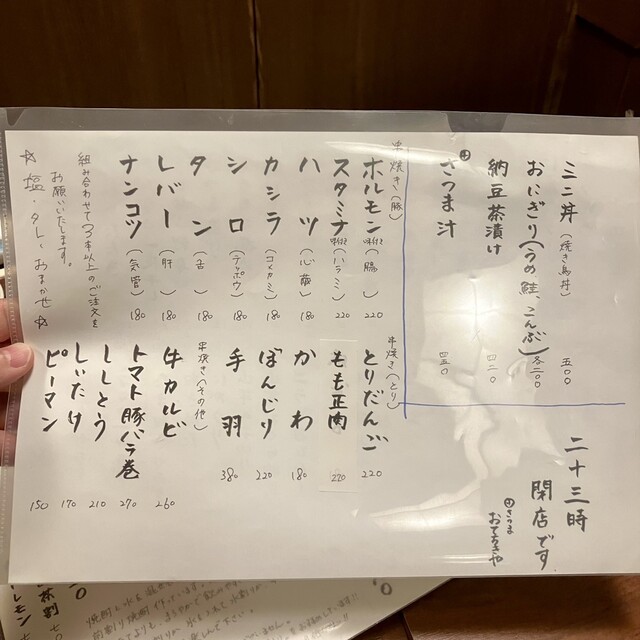 ミニ丼（焼き鳥丼） 五〇〇
おにぎり（うめ、鮭、こんぶ） 各二〇〇
納豆茶漬け 四二〇
さつま汁 四五〇
二十三時
閉店です
串焼き（豚）
ホルモン 味付き（腸） 220
スタミナ 味付き（ハラミ） 220
ハツ（心臓） 180
カシラ（コメカミ） 180
シロ（テッポウ） 180
タン（舌） 180
レバー（肝） 180
ナンコツ（気管） 180
組み合わせて3本以上のご注文を
お願いいたします。
☆塩・タレ・おまかせ☆
串焼き（とり）
とりだんご 220
もも正肉 220
かわ 180
ぼんじり 220
手羽 380
串焼き（その他）
牛カルビ 260
トマト豚バラ巻 270
ししとう 210
しいたけ 170
ピーマン 150